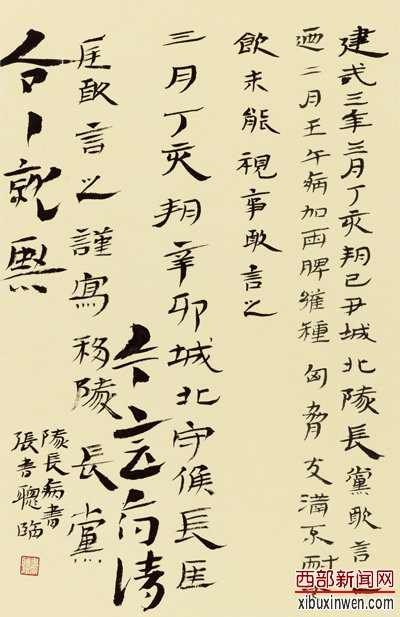 建武三年三月丁亥朔己丑城北隧長黨敢言之
迺二月壬午病加兩脾雍種匈脅支滿不耐食
飲未能視事敢言之
三月丁亥朔辛卯城北守候長匡
今言府請
匡敢言之謹寫移隧長黨
令就醫
隧長病書
張聰臨
西部新闻网
xibuxinwen.com